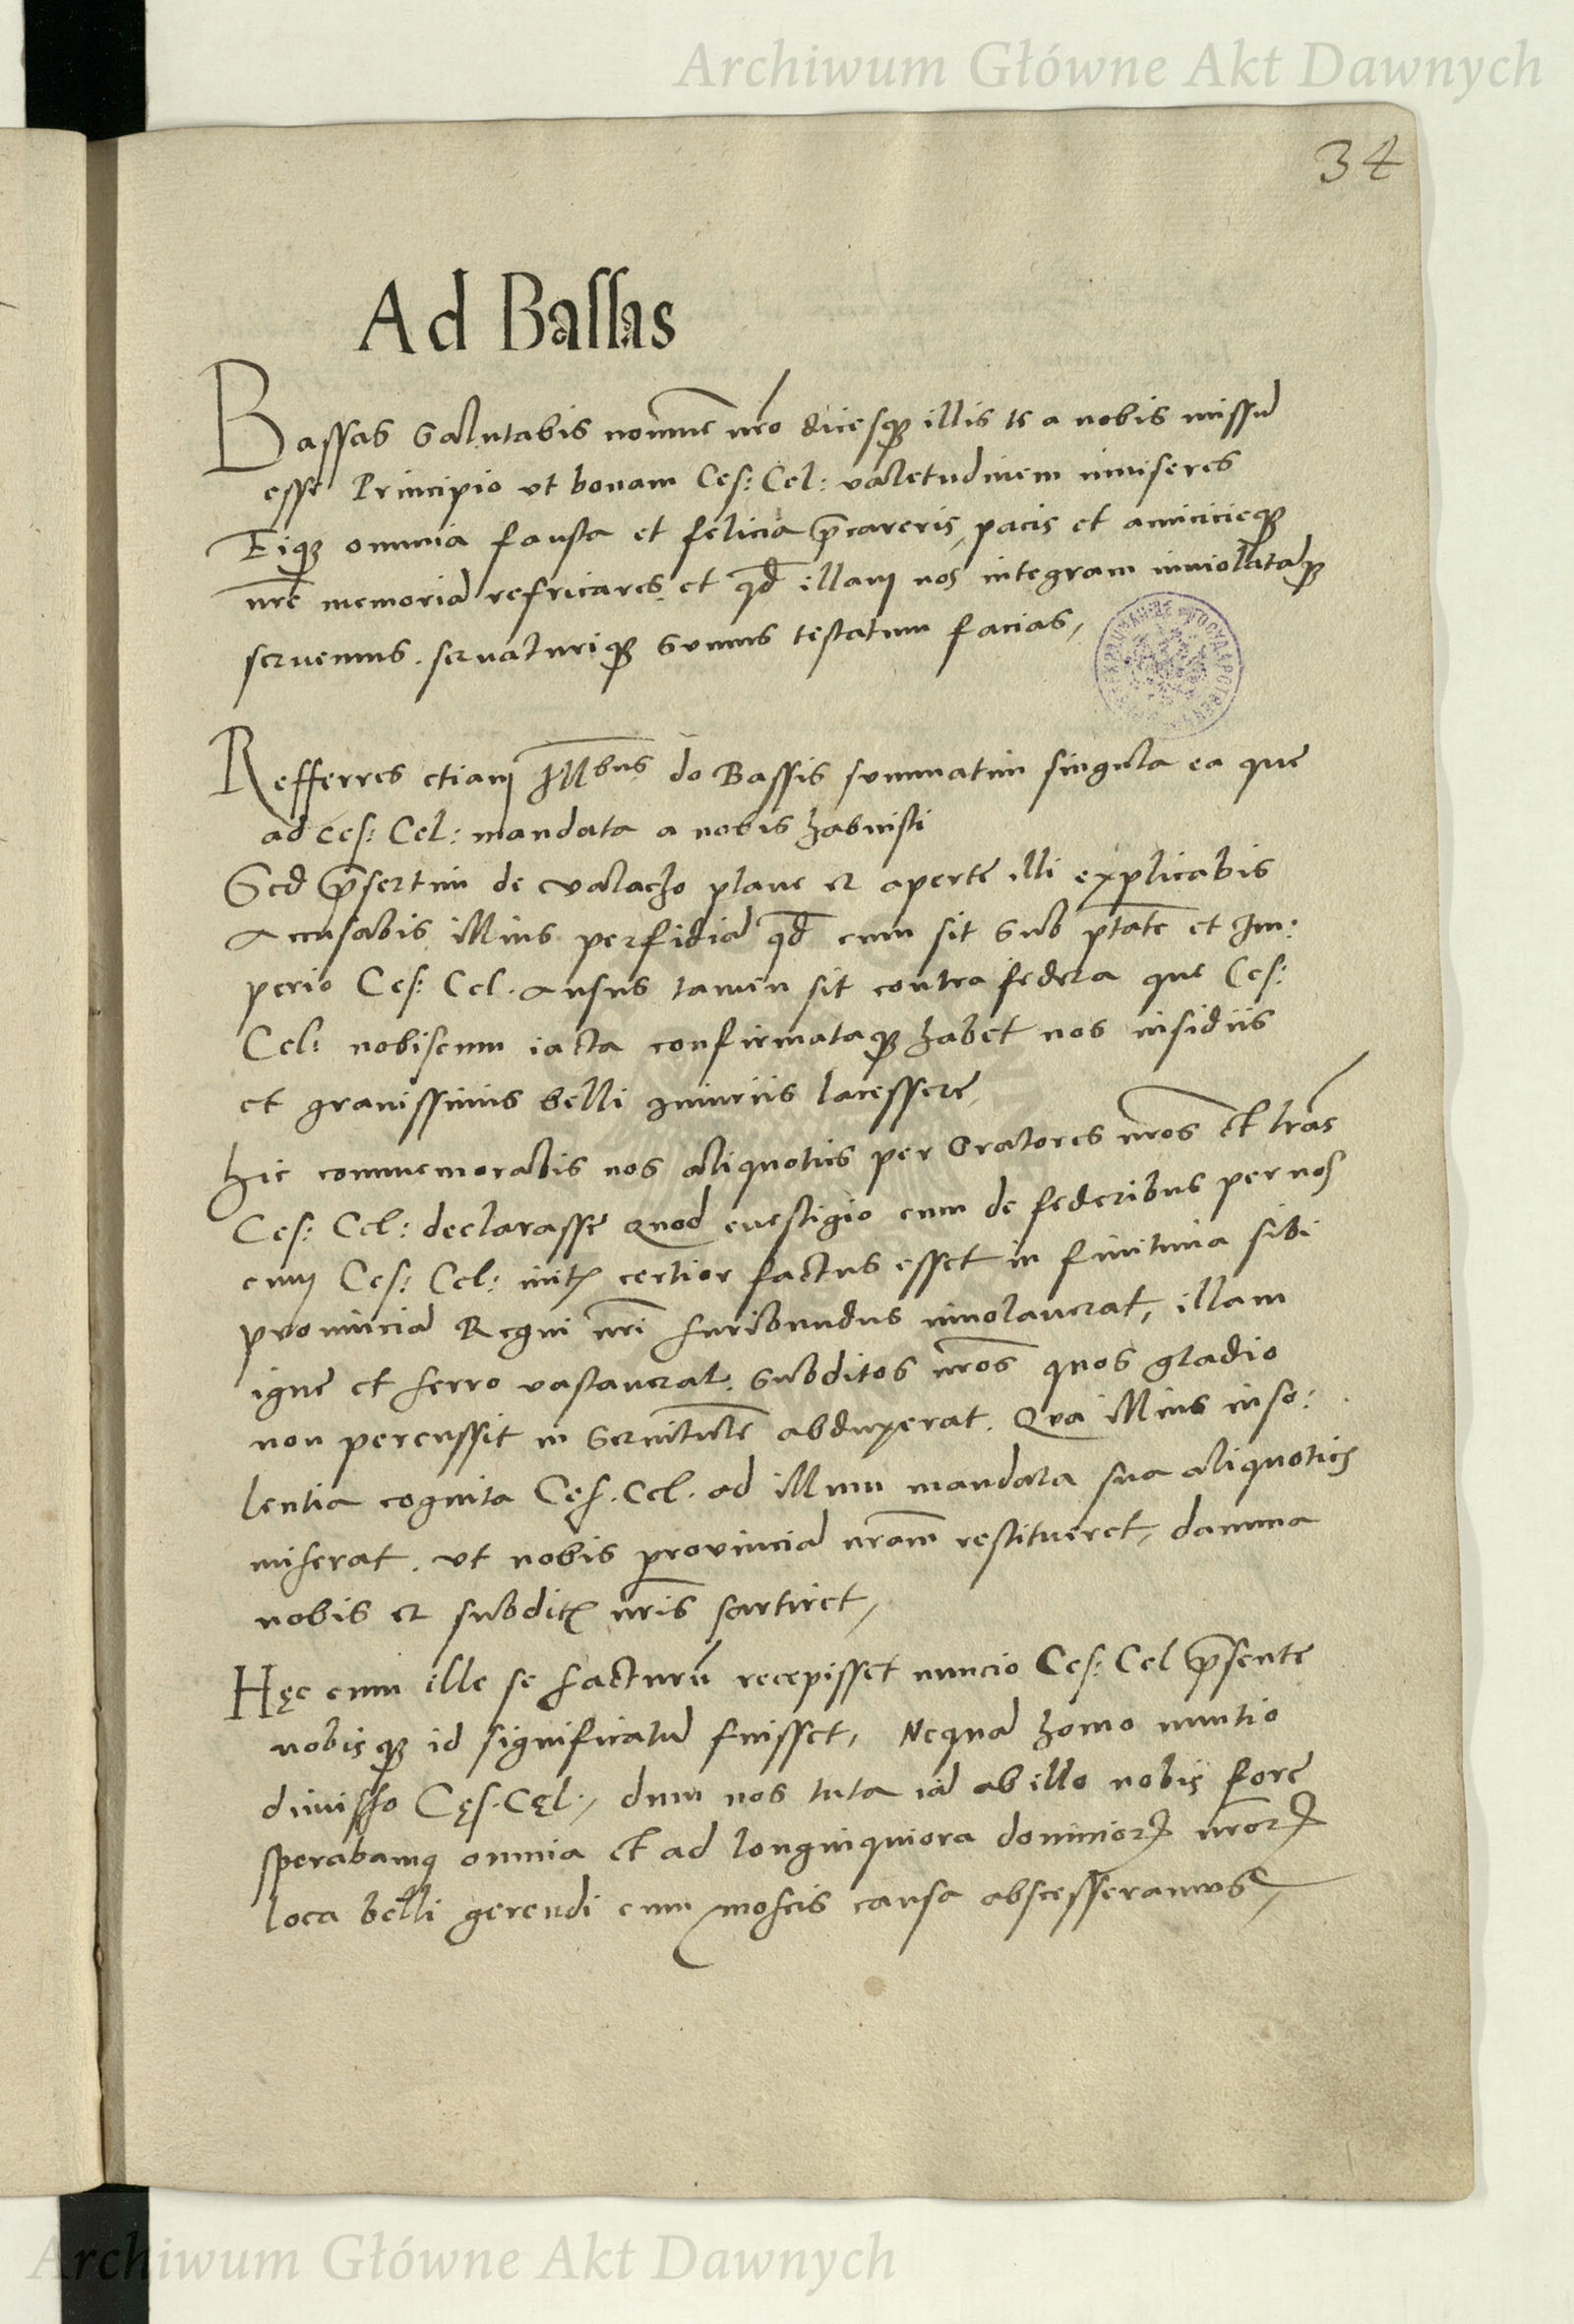 Archiwum Główne Akt Dawnych
34
Ad Bassas
Bassas Salutabis nomine nro dicesque illis te a nobis missu
esse Principio ut bonam Ces: Cel: valetudinem inviseres
Eique omnia fausta et felicia precareris, pacis et amicicieque
nre memoria refricares et qd illam nos integram inviolataque
servemus. servaturique Sumus testatum facias,
Refferres etiam Illbus do Bassis summatim singula ea que
ad Ces: Cel: mandata a nobis habuisti
Sed presertim de Valacho plane et aperte illi explicabis
Accusabis illius perfidia qd cum sit Sub ptate et Im:
perio Ces: Cel. Ausus tamen sit contra federa que Ces:
Cel: nobiscum iacta confirmataque habet nos insidiis
et gravissimis belli Iniuriis lacessere,
Hic commemorabis nos aliquoties per Oratores nros et lras
Ces: Cel: declarasse Quod evestigio cum de federibus per nos
cum Ces: Cel: initis certior factus esset in finitima sibi
provincia Regni nri furibundus involaverat, illam
igne et ferro vastaverat. Subditos nros quos gladio
non percussit in Servitute abduxerat. Qua illius inso:
lentia cognita Ces. Cel. ad illum mandata sua aliquoties
miserat. ut nobis provincia nram restitueret, damna
nobis et subditis nris sartiret,
Hęc cum ille se facturu recepisset nuncio Ces: Cel presente
nobisque id significatu fuisset, Nequa homo nuntio
dimisso Cęs. Cęl., dum nos tuta ia ab illo nobis fore
sperabamus omnia et ad longinquiora dominiorum nrorum
loca belli gerendi cum Moscis causa abscesseramus,
Archiwum Główne Akt Dawnych